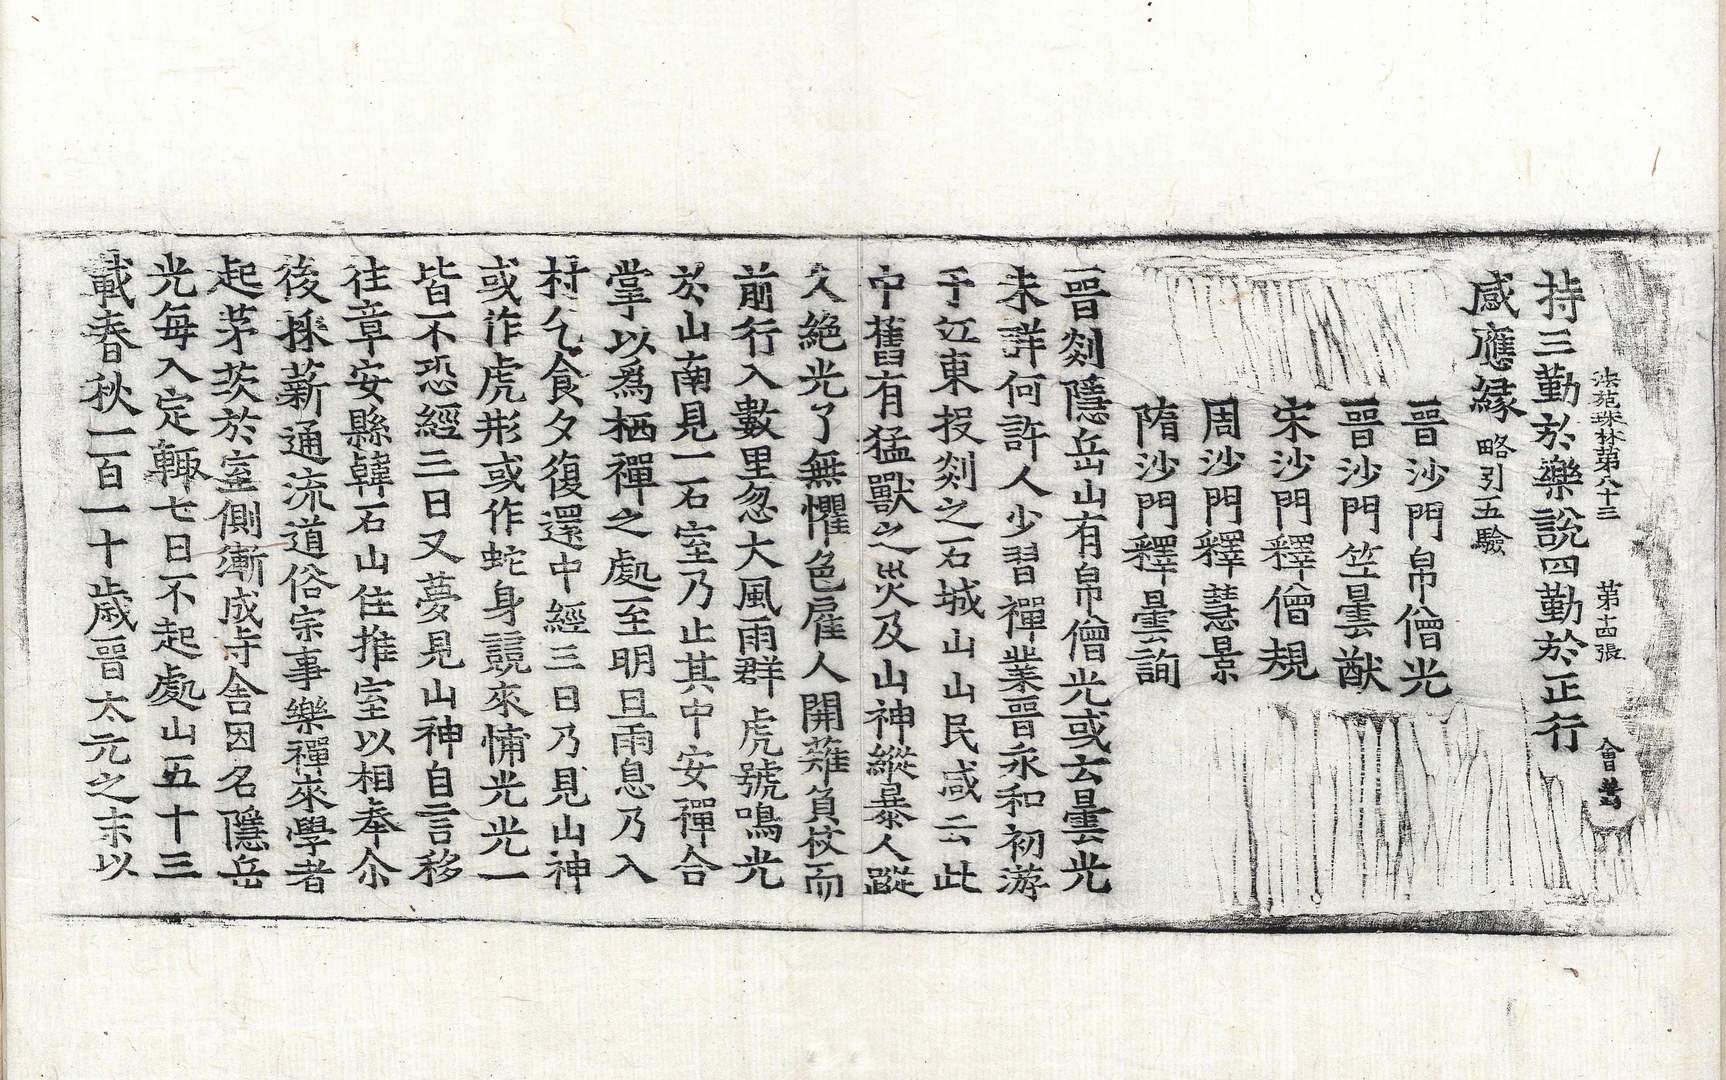 法苑珠林第八十三　第十四張　會
持三勤於樂說四勤於正行
感應緣略引五驗
晉沙門帛僧光
晉沙門竺曇猷
宋沙門釋僧規
周沙門釋慧景
隋沙門釋曇詢
晉剡隱岳山有帛僧光或云曇光
未詳何許人少習禪業晉永和初游
于江東投剡之石城山山民咸云此
中舊有猛獸之災及山神縱暴人蹤
久絕光了無懼色雇人開薙負杖而
前行入數里忽大風雨群虎號鳴光
於山南見一石室乃止其中安禪合
掌以爲栖禪之處至明旦雨息乃入
村乞食夕復還中經三日乃見山神
或作虎形或作蛇身競來怖光光一
皆不恐經三日又夢見山神自言移
往章安縣韓石山住推室以相奉尒
後採薪通流道俗宗事樂禪來學者
起茅茨於室側漸成寺舍因名隱岳
光每入定輒七日不起處山五十三
載春秋一百一十歲晉太元之末以